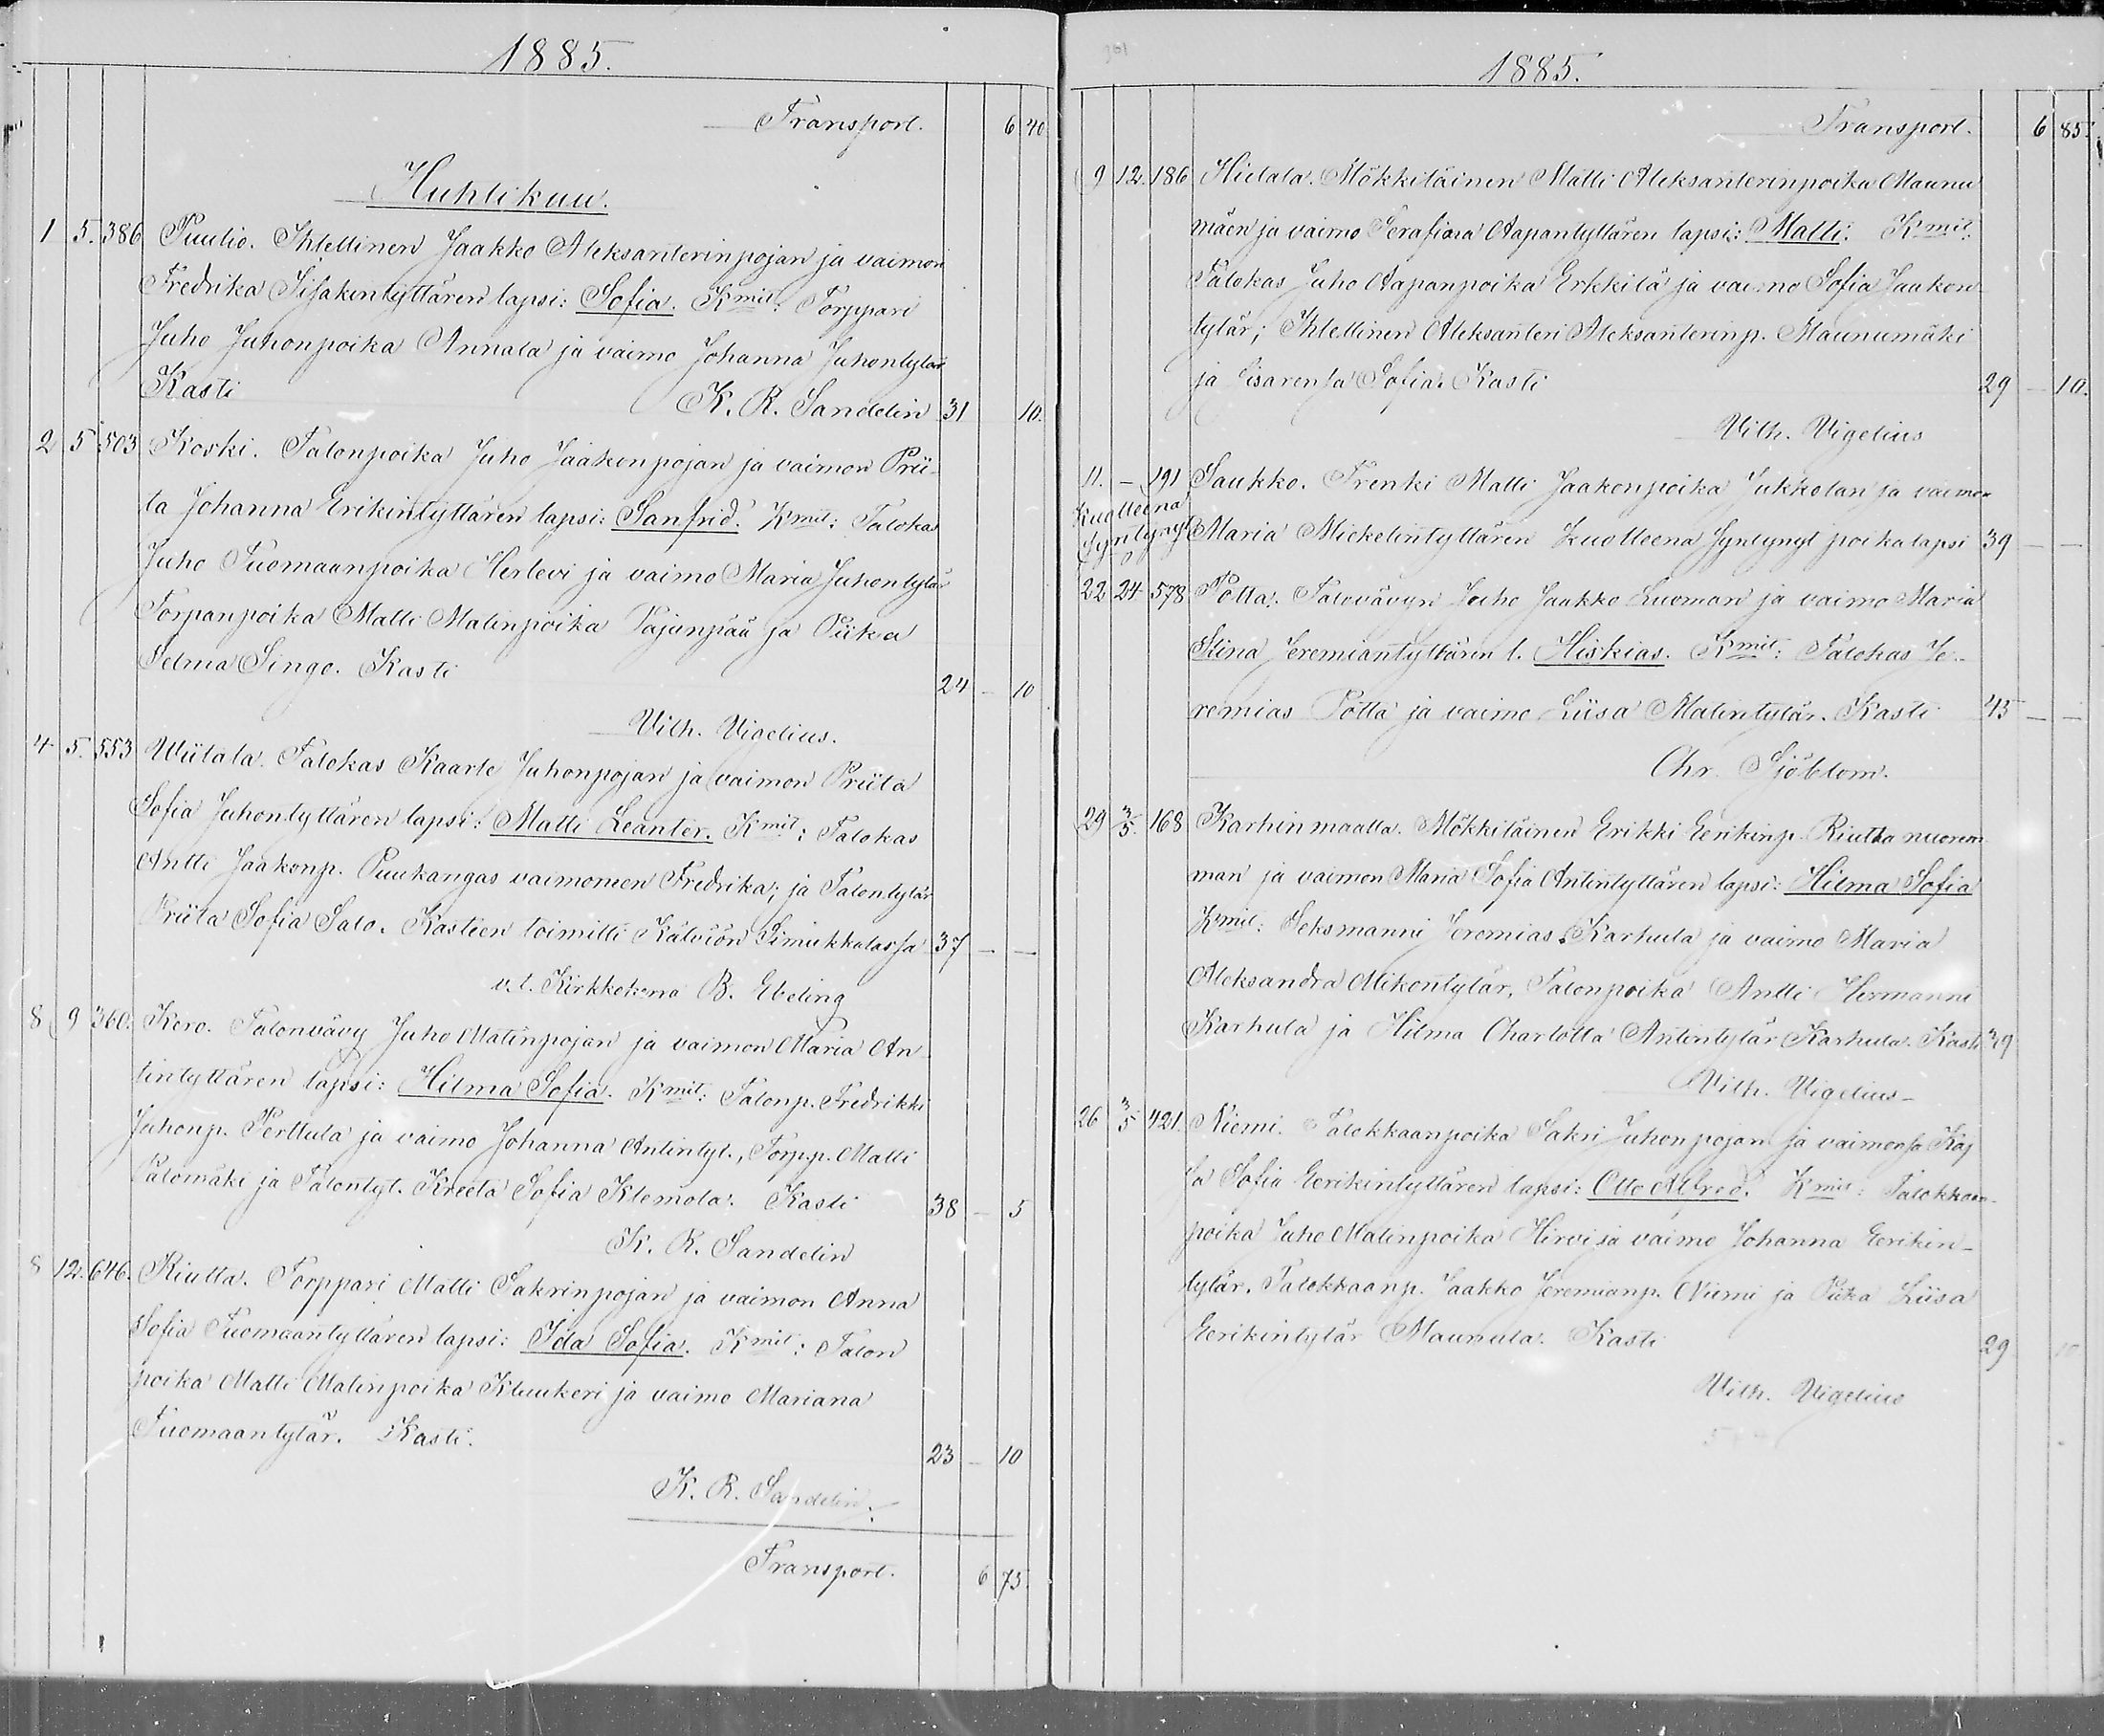 1885.
Transport. 6 40
Huhtikuu.
1 5. 386 Puutio. Ihtellinen Jaakko Aleksanterinpojan ja vaimon
Fredrika Iisakintyttären lapsi: Sofia. Kmit: Torppari
Juho Juhonpoika Annala ja vaimo Johanna Juhontytär
Kasti K. R. Sandelin 31 10.
2 5 503 Koski. Talonpoika Juho Jaakonpojan ja vaimon Prii-
ta Johanna Erikintyttären lapsi: Sanfrid. Kmit: Talokas
Juho Tuomaanpoika Herlevi ja vaimo Maria Juhontytär
Torpanpoika Matti Matinpoika Pajunpää ja Piika
Selma Singo. Kasti 24 – 10
Vilh. Vigelius.
4 5. 553 Wiitala. Talokas Kaarle Juhonpojan ja vaimon Priita
Sofia Juhontyttären lapsi: Matti Leanter. Kmit: Talokas
Antti Jaakonp. Puukangas vaimonen Fredrika; ja Talontytär
Priita Sofia Salo. Kasteen toimitti Kälviön Simukkalassa 37 – –
v.t. Kirkkoh:na B. Ebeling
8 9 360. Kero. Talonvävy Juho Matinpojan ja vaimon Maria An-
tintyttären lapsi: Hilma Sofia. Kmit: Talonp. Fredrikki
Juhonp. Perttula ja vaimo Johanna Antintyt., Torp.p. Matti
Palomäki ja Talontyt. Kreeta Sofia Klemola. Kasti 38 – 5
K. R. Sandelin
8 12. 646. Riutta. Torppari Matti Sakrinpojan ja vaimon Anna
Sofia Tuomaantyttären lapsi: Ida Sofia. Kmit: Talon
poika Matti Matinpoika Kluukeri ja vaimo Mariana
Tuomaantytär. Kasti. 23 – 10
K. R. Sandelin.
Transport. 6 75.
1885.
Transport. 6 85.
9 12. 186 Hietala. Mökkiläinen Matti Aleksanterinpoika Maunu
mäen ja vaimo Serafiina Aapantyttären lapsi: Matti. Kmit:
Talokas Juho Aapanpoika Erkkilä ja vaimo Sofia Jaakon
tytär; Ihtellinen Aleksanteri Aleksanterinp. Maunumäki
ja Sisarensa Sofia. Kasti 29 – 10.
Vilh. Vigelius
11. – 191 Saukko. Trenki Matti Jaakonpoika Jukkolan ja vaimon
Kuolleena
syntynyt Maria Mickelintyttären kuolleena syntynyt poikalapsi 39 – –
22 24 578 Pötta. Talovävyn Juho Jaakko Luoman ja vaimo Maria
Stina Jeremiantyttären l. Hiskias. Kmit: Talokas Je-
remias Pötta ja vaimo Liisa Matintytär. Kasti 45 – –
Chr. Sjöblom.
29 3/5 168 Karhinmaalla. Mökkiläinen Erikki Eerikinp. Riutta nuorem
man ja vaimon Maria Sofia Antintyttären lapsi: Hilma Sofia
Kmit: Seksmanni Jeremias Karhula ja vaimo Maria
Aleksandra Mikontytär, Talonpoika Antti Hermanni
Karhula ja Hilma Charlotta Antintytär Karhula. Kasti 29
Vilh. Vigelius –
26 3/5 421. Niemi. Talokkaanpoika Sakri Juhonpojan ja vaimonsa Kaj
sa Sofia Eerikintyttären lapsi: Otto Alfred. Kmit: Talokkaan-
poika Juho Matinpoika Hirvi ja vaimo Johanna Eerikin-
tytär. Talokkaanp. Jaakko Jeremianp. Niemi ja Piika Liisa
Eerikintytär Maunula. Kasti 29 10
Vilh. Vigelius